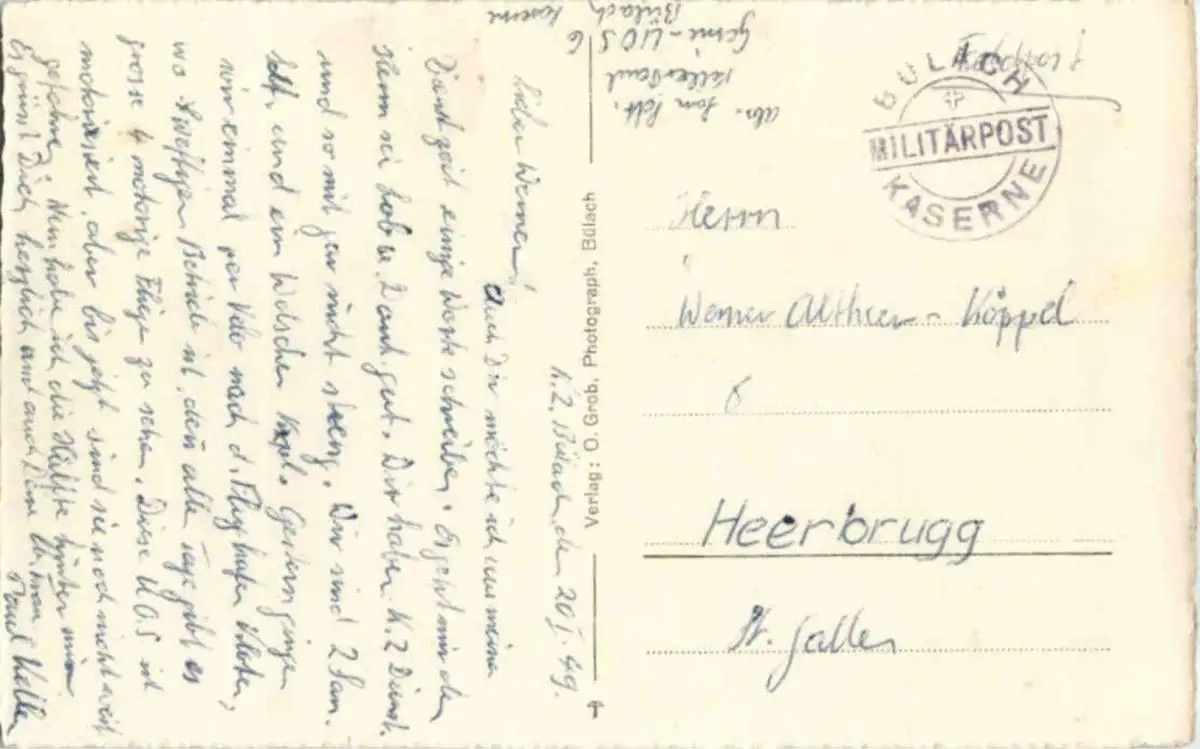 Feldpost
BÜLACH
MILITÄRPOST
KASERNE
Abs. San. Sdt.
Keller Paul
Genie-UOS 6
Bülach Kaserne
Herrn
Werner Altherr-Köppel
Heerbrugg
St. Gallen
Verlag: O. Grob, Photograph, Bülach
K.Z. Bülach, den 20.I.49.
Lieber Werner!
Auch Dir möchte ich aus meiner
Dienstzeit einige Worte schreiben. Es geht mir
sei Lob u. Dank gut. Wir haben K.Z Dienst.
und so mit gar nicht streng. Wir sind 2 San.
Sdt. und ein Welscher Kpl. Gestern gingen
wir einmal per Velo nach d. Flughafen Kloten,
wo Betrieb ist, denn alle Tage gibt es
grosse 4 motorige Flüge zu sehen. Diese UOS ist
motorisiert, aber bis jetzt sind sie noch nicht weit
gefahren. Nun habe ich die Hälfte hinter mir
Es grüsst Dich herzlich und auch Deine
Paul Keller